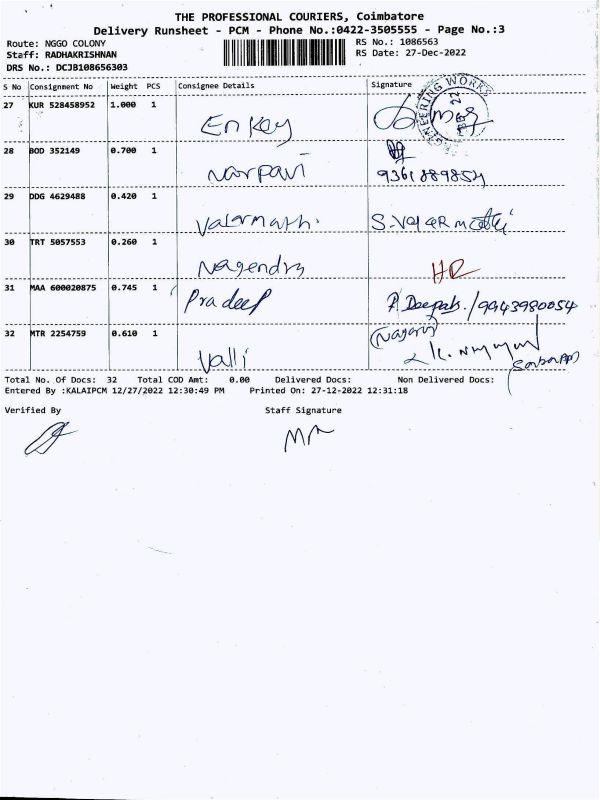 THE PROFESSIONAL COURIERS, Coimbatore
Delivery Runsheet - PCM - Phone No.:0422-3505555 - Page No.:3
Route: NGGO COLONY RS No.: 1086563
Staff: RADHAKRISHNAN RS Date: 27-Dec-2022
DRS No.: DCJB108656303
S No Consignment No Weight PCS Consignee Details Signature
27 KUR 528458952 1.000 1 Enkey
GINEERING WORKS
28 BOD 352149 0.700 1 Narpavi 9361889854
29 DDG 4629488 0.420 1 Valarmathi S.Valarmathi
30 TRT 5057553 0.260 1 Nagendra HR
31 MAA 600020875 0.745 1 Pradeep P. Deepak. / 9943980054
32 MTR 2254759 0.610 1 Valli
Total No. Of Docs: 32 Total COD Amt: 0.00 Delivered Docs: Non Delivered Docs:
Entered By :KALAIPCM 12/27/2022 12:30:49 PM Printed On: 27-12-2022 12:31:18
Verified By Staff Signature